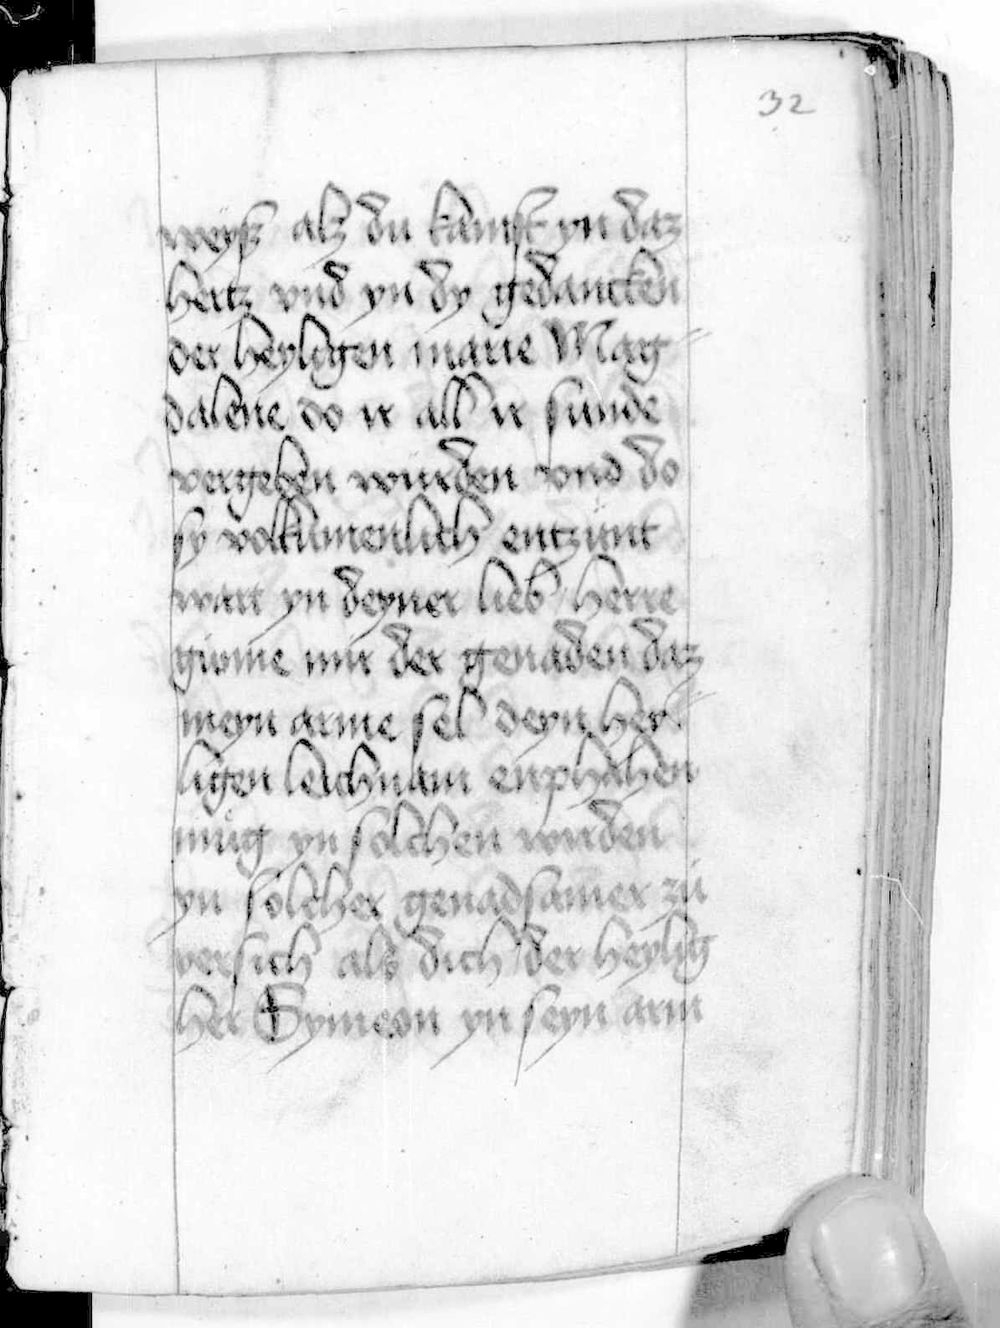 32
weysz alz du kamst yn daz
hertz vnd yn dy gedancken
der heyligen marie Mag
dalene do ir all ir sunde
vergeben wurden vnd do
sy volkumenlich entzunt
wart yn deyner lieb herre
gunne mir der genaden daz
meyn arme sel deyn hey
ligen leichnam enphahen
mug yn solchen wirden
yn solcher genadsamer zu
versich alz dich der heylig
her Symeon yn seyn arm